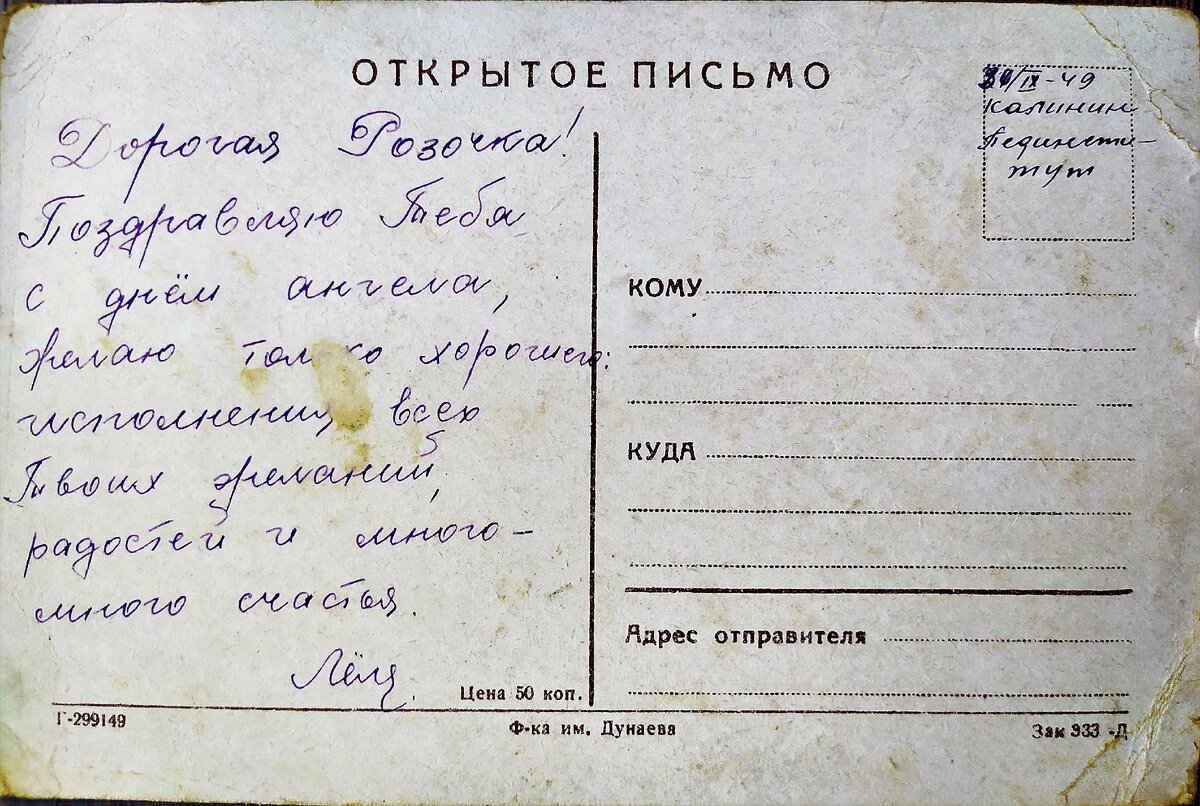 ОТКРЫТОЕ ПИСЬМО
30/IX-49
Калинин
Пединсти-
тут
Дорогая Розочка!
Поздравляю Тебя
с днём ангела,
желаю только хорошего:
исполнения всех
Твоих желаний,
радостей и много-
много счастья.
Лёля.
КОМУ
КУДА
Адрес отправителя
Цена 50 коп.
Г-299149
Ф-ка им. Дунаева
Зак 933 -Д